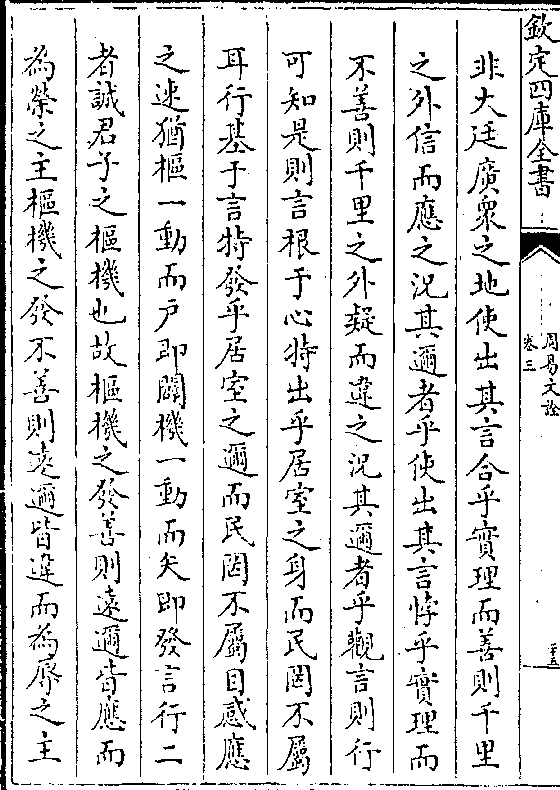 欽定四庫全書
周易文詮
卷三
非大廷廣衆之地使出其言合乎實理而善則千里
之外信而應之況其邇者乎使出其言悖乎實理而
不善則千里之外疑而違之況其邇者乎觀言則行
可知是則言根于心特出乎居室之身而民罔不屬
耳行基于言特發乎居室之邇而民罔不屬目感應
之速猶樞一動而戸即闢機一動而矢即發言行二
者誠君子之樞機也故樞機之發善則遠邇皆應而
為榮之主樞機之發不善則遠邇皆違而為辱之主